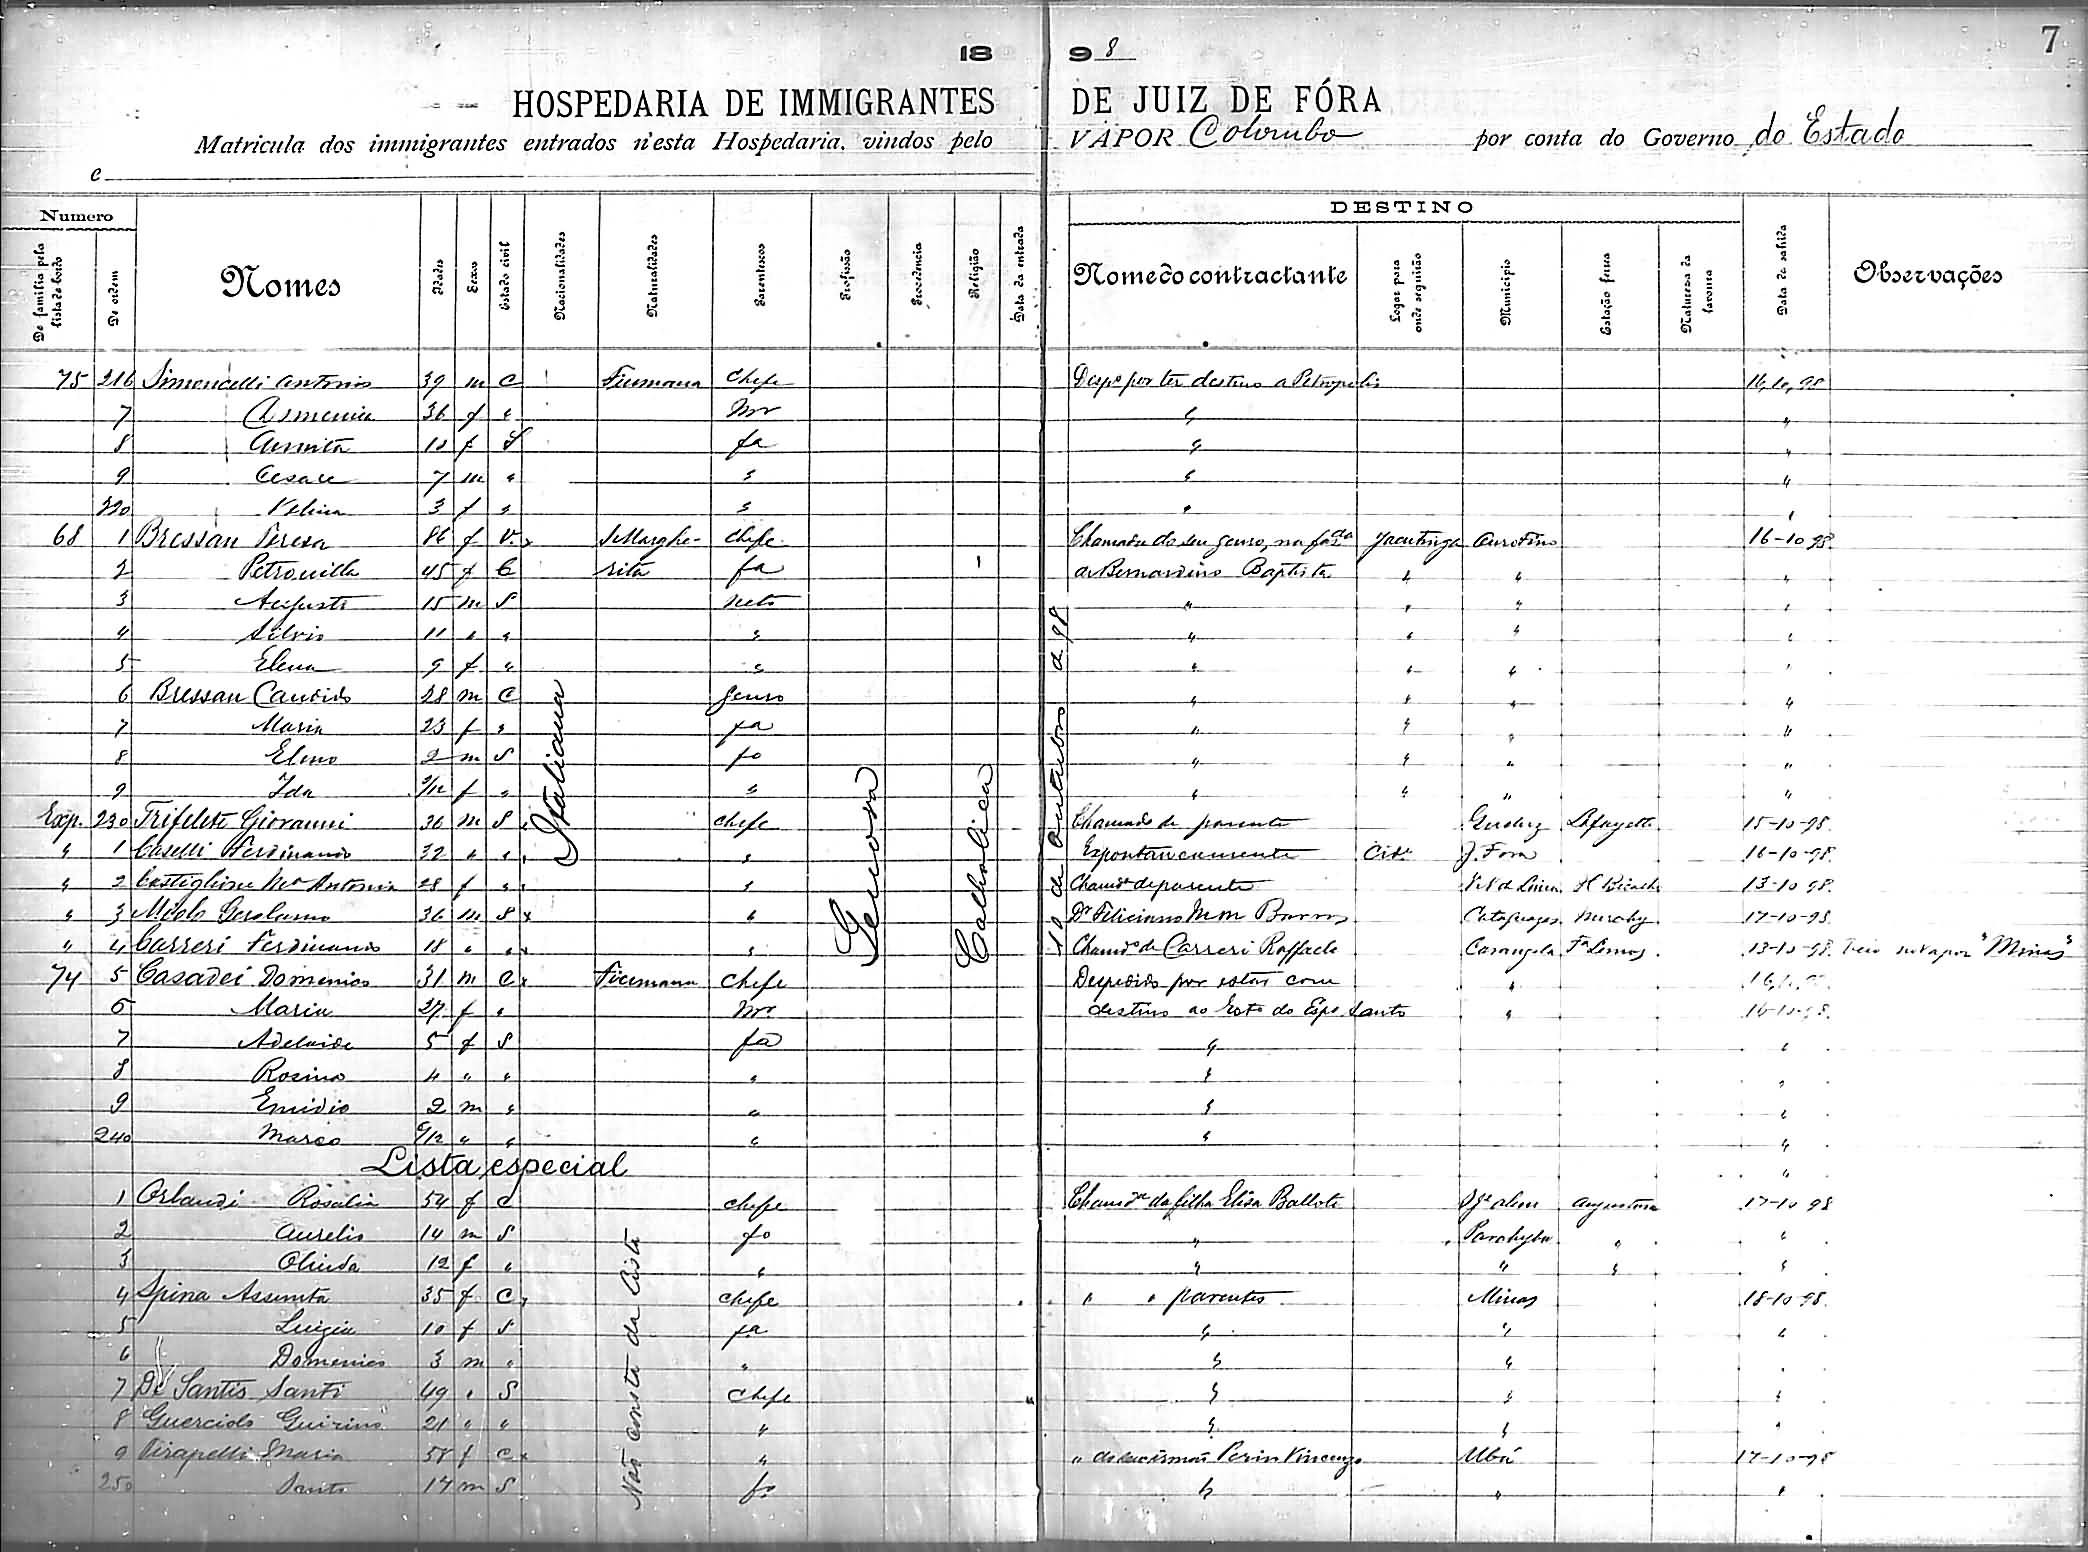 7
18 98
HOSPEDARIA DE IMMIGRANTES DE JUIZ DE FÓRA
Matricula dos immigrantes entrados n'esta Hospedaria, vindos pelo VAPOR Colombo por conta do Governo do Estado
e
Numero DESTINO
De familia pela lista de bordo De ordem Nomes Idades Sexos Estado civil Nacionalidades Naturalidades Parentescos Profissão Procedencia Religião Data da entrada Nome do contractante Logar para onde seguirão Municipio Estação ferrea Natureza da lavoura Data da sahida Observações
75 216 Simoncelli Antonio 39 m C Fiumana Chefe Despo por ter destino a Petropolis 16,10,98
7 36 f " mer " "
8 10 f S fa " "
9 Cesare 7 m " " " "
220 3 f " " " "
68 1 Bressan Teresa 86 f V. S Marghe- Chefe Chamada do seu genro, na fazda Jacutinga Ouro Fino 16-10 98
2 Petronilla 45 f C rita fa de Bernardino Baptista " " "
3 Augusto 15 m S neto " " " "
4 Silvio 11 " " " " " " "
5 Elena 9 f " " " " " "
6 Bressan Candido 28 m C genro " " " "
7 Maria 23 f " fa " " " "
8 Eleno 2 m S fo " " " "
9 Ida /12 f " " " " " "
Exp. 230 Giovanni 36 m S chefe Chamado de parente Lafayette 15-10-98
" 1 Caselli Ferdinando 32 " " " Expontaneamente Cide J. Fora 16-10-98
" 2 Castiglione Ma Antonia 28 f " " Chamda de parente 13-10 98
" 3 Gerolamo 36 m S " Dr Feliciano Barros Cataguazes 17-10-98
" 4 Carreri Ferdinando 18 " " " Chamdo de Carreri Raffaele Carangola Fa Lemos 13-10-98 Veio no vapor "Minas"
74 5 Casadei Domenico 31 m C Fiumana Chefe Despedido por estar com " 16,
6 Maria 27 f " mer destino ao Esto do Espo Santo " 16-10-98
7 Adelaide 5 f S fa " "
8 Rosina 4 " " " " "
9 Emidio 2 m " " " "
240 Marco /12 " " " " "
Lista especial "
1 Orlandi Rosalia 54 f C chefe Chamda da filha Elisa Ballote alem Angustura 17-10 98
2 Aurelio 14 m S fo " Parahyba " "
3 Olinda 12 f " " " " " "
4 Spina Assunta 35 f C chefe " " parentes Minas 18-10-98
5 Luigia 10 f S fa " " "
6 Domenico 3 m " " " "
7 De Santis Santi 49 " S Chefe " " "
8 Guirino 21 " " " " " "
9 Maria 58 f C " " do seu irmão Perin Vincenzo Ubá 17-10-98
250 Santo 17 m S fo " " "
Italiana
Genova
Catholica
10 de outubro de 98
Não consta da lista